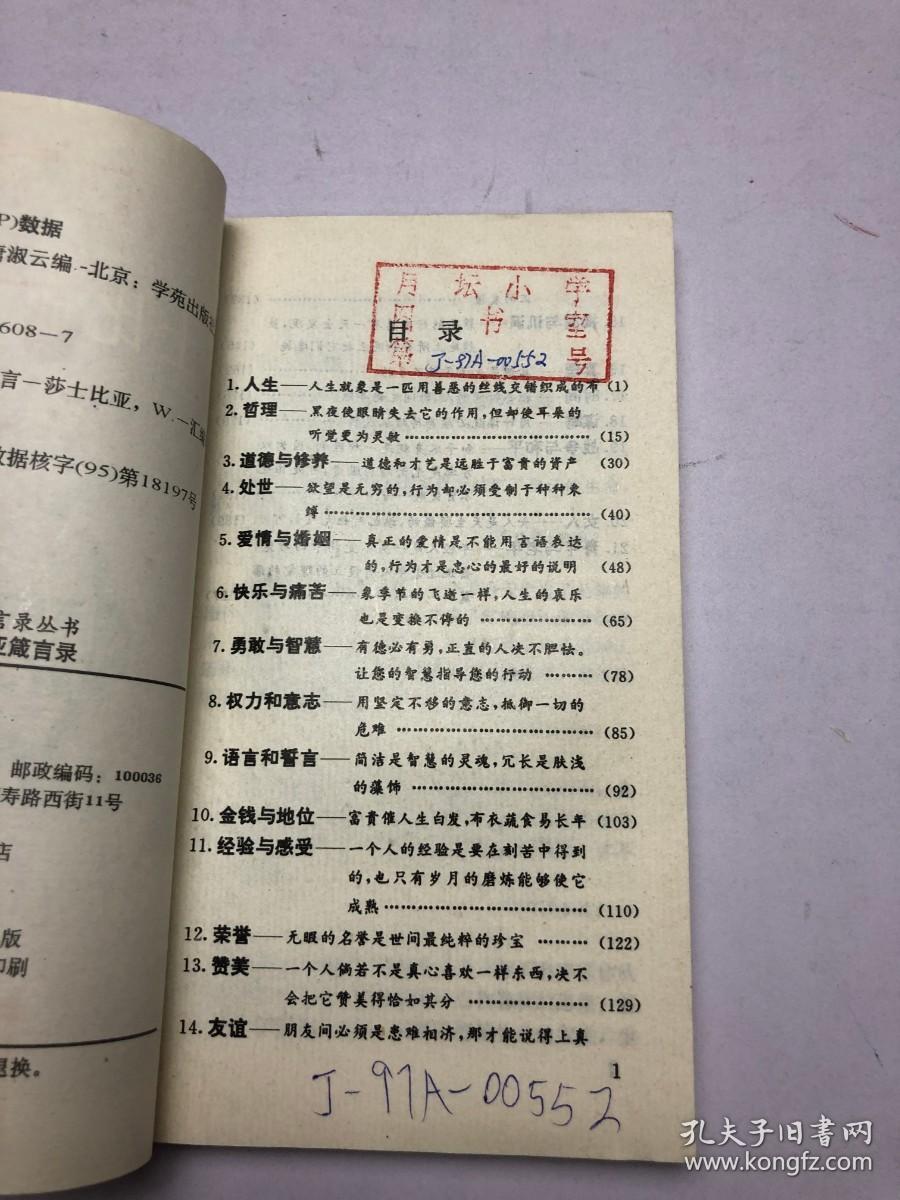 P)数据
淑云编.-北京：学苑出版社
608—7
言—莎士比亚，W.—汇编
数据核字(95)第18197号
言录丛书
亚箴言录
邮政编码：100036
寿路西街11号
店
版
印刷
退换。
月坛小学
图书室
第 J-97A-00552 号
目录
1.人生——人生就象是一匹用善恶的丝线交错织成的布 (1)
2.哲理——黑夜使眼睛失去它的作用，但却使耳朵的
听觉更为灵敏………………………………(15)
3.道德与修养——道德和才艺是远胜于富贵的资产 (30)
4.处世——欲望是无穷的，行为却必须受制于种种束
缚………………………………………(40)
5.爱情与婚姻——真正的爱情是不能用言语表达
的，行为才是忠心的最好的说明 (48)
6.快乐与痛苦——象季节的飞逝一样，人生的哀乐
也是变换不停的………………(65)
7.勇敢与智慧——有德必有勇，正直的人决不胆怯。
让您的智慧指导您的行动………(78)
8.权力和意志——用坚定不移的意志，抵御一切的
危难………………………………(85)
9.语言和誓言——简洁是智慧的灵魂，冗长是肤浅
的藻饰……………………………(92)
10.金钱与地位——富贵催人生白发，布衣蔬食易长年 (103)
11.经验与感受——一个人的经验是要在刻苦中得到
的，也只有岁月的磨炼能够使它
成熟………………………………(110)
12.荣誉——无暇的名誉是世间最纯粹的珍宝………(122)
13.赞美——一个人倘若不是真心喜欢一样东西，决不
会把它赞美得恰如其分………………(129)
14.友谊——朋友间必须是患难相济，那才能说得上真
1
J-97A-00552
孔夫子旧书网
www.kongfz.com